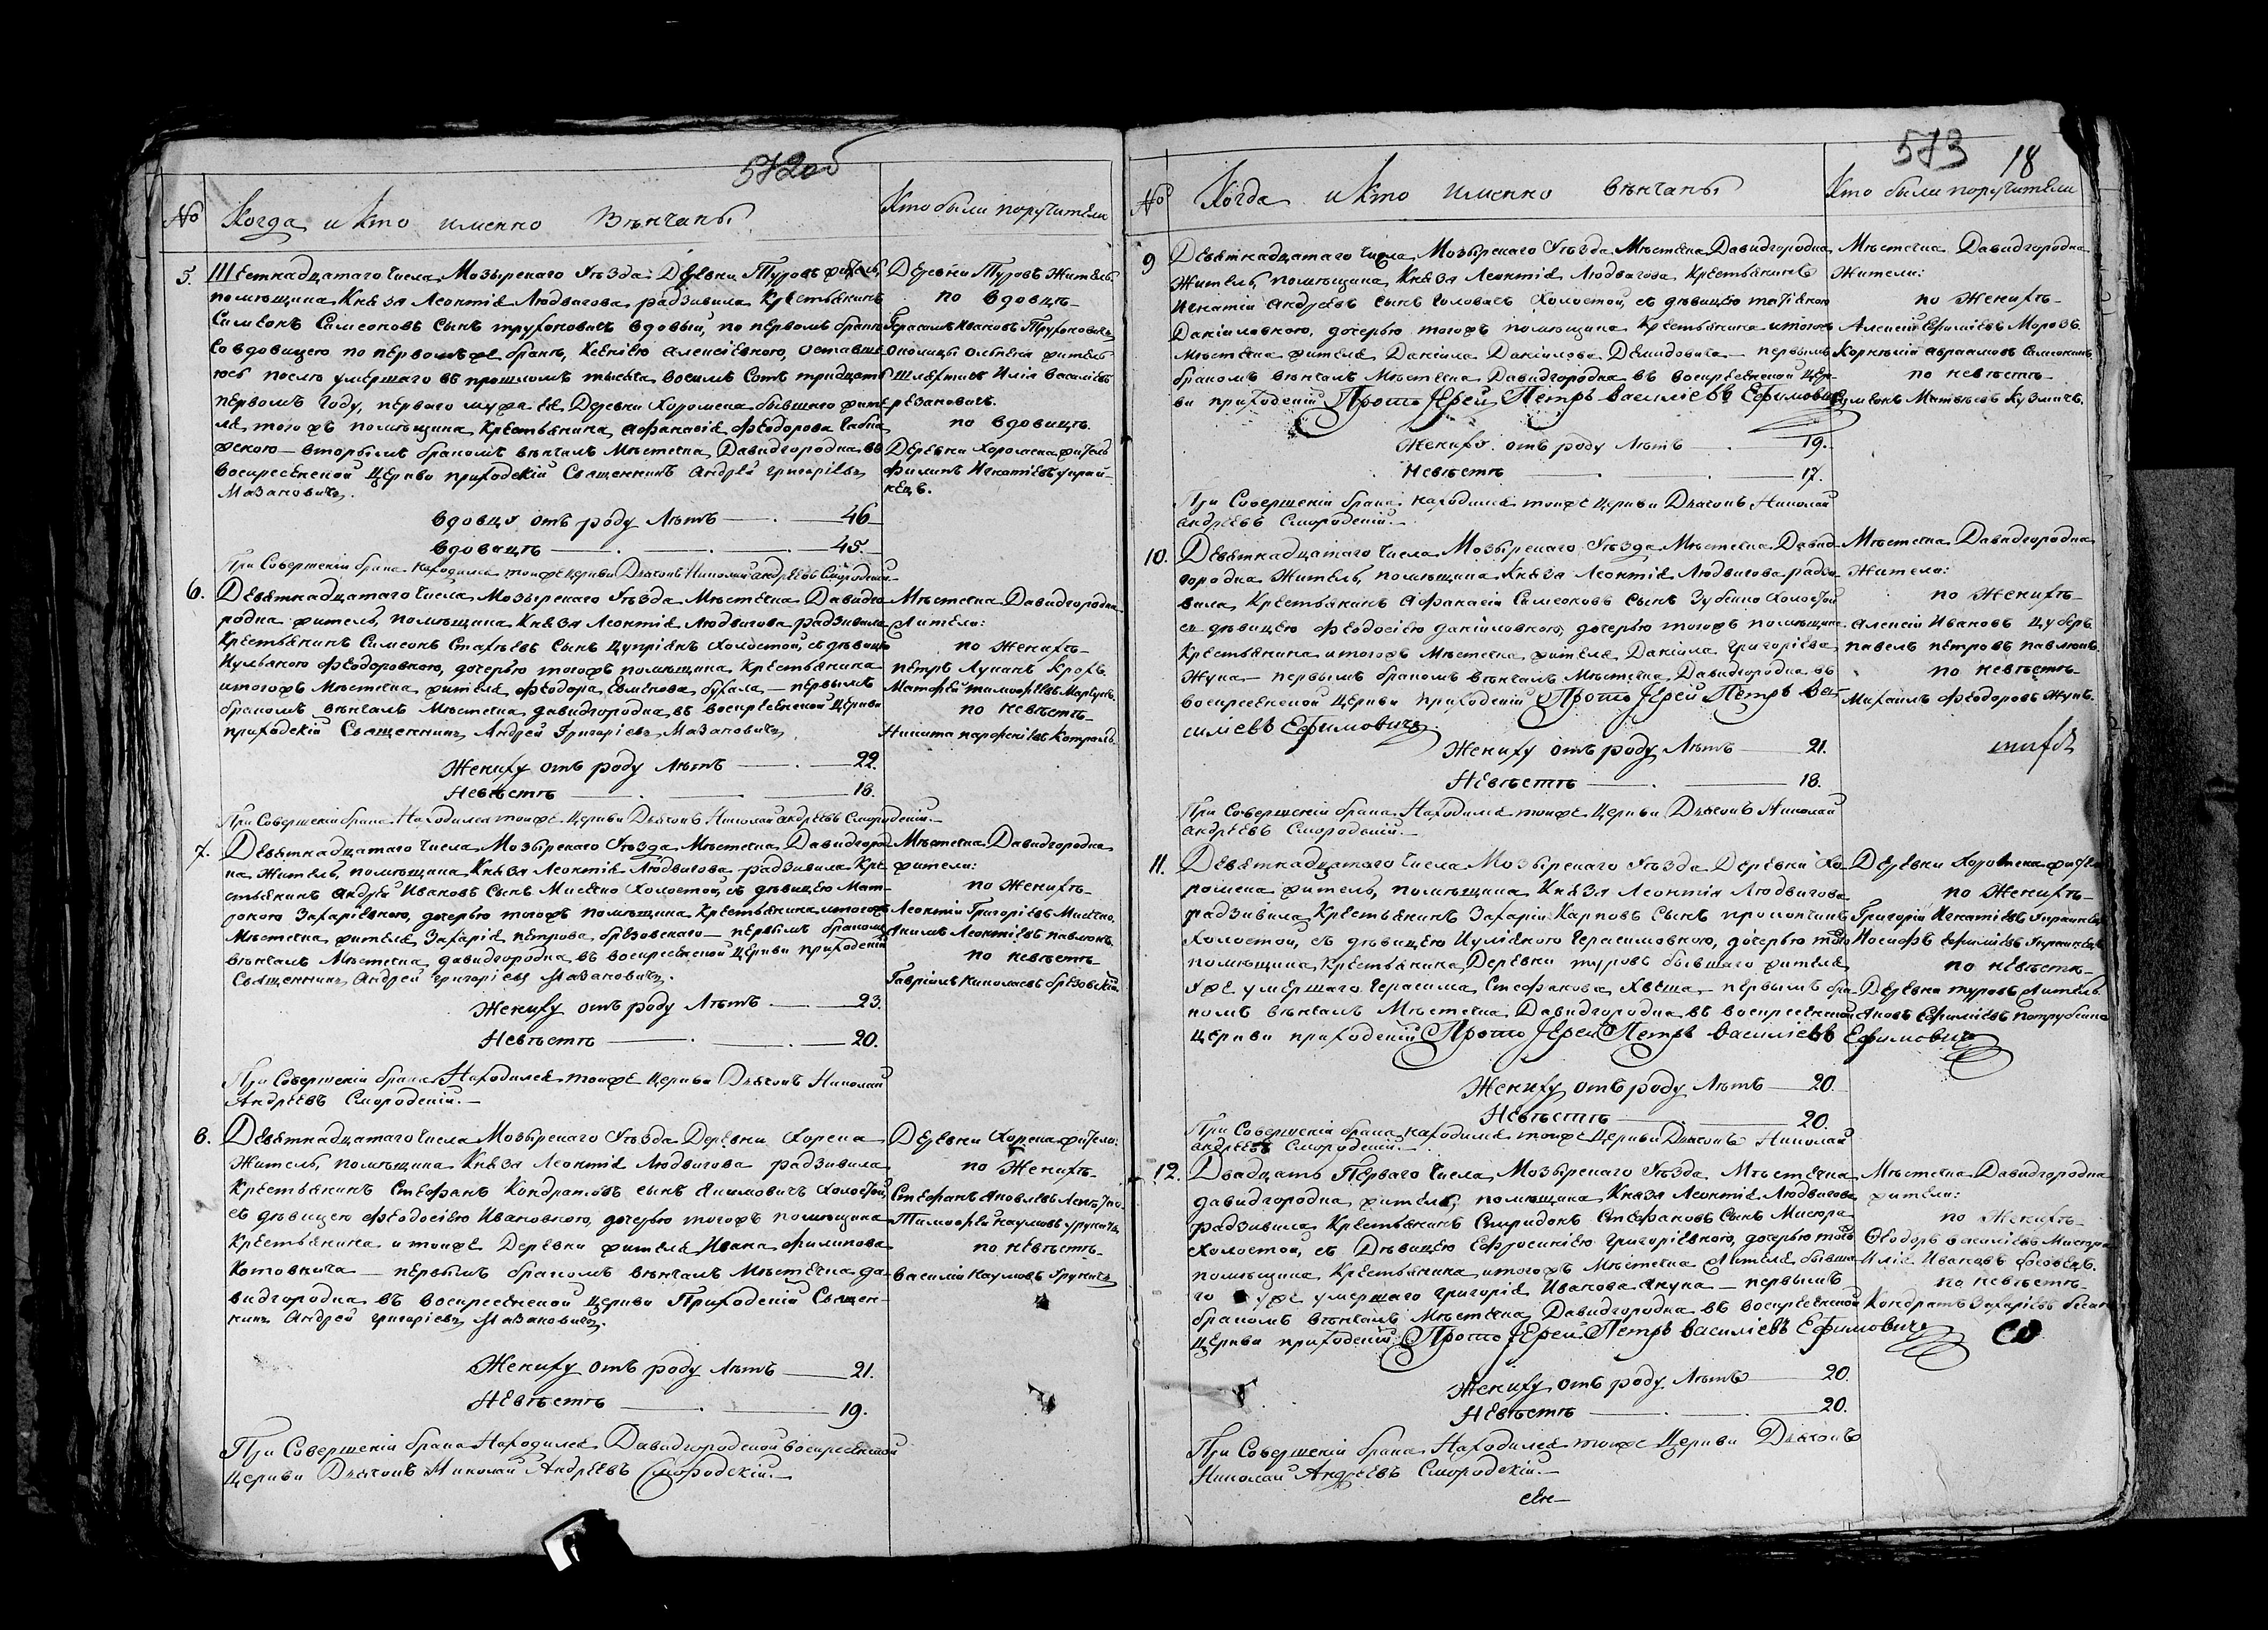 572об
№ Когда и кто именно Вѣнчаны
Кто были поручители
5. Шестнадцатаго числа Мозырскаго Уѣзда Деревни Туровъ житель,
помѣщика Князя Леонтія Людвигова радзивила Крестьянинъ
Симеонъ Симеоновъ Сынъ труфоновичъ вдовый, по первомъ бракѣ
Со вдовицею по первомъже бракѣ, Ксенїею алексїевною, оставше
юсь послѣ умершаго въ прошломъ тысяча восемъ Сотъ тридцать
первомъ году, перваго мужа ея Деревни Хоромска бывшаго жите
ля, тогожъ помѣщика Крестьянина, афанасія Феодорова
вторымъ бракомъ вѣнчалъ Мѣстечка Давидгородка въ
воскресенской Церкви приходскій Священникъ Андрей григорїевъ
Мазановичъ.
вдовцу отъ роду Лѣтъ — 46
вдовицѣ — 45.
При Совершенїи брака находился тойже церкви Дьяконъ Николай андреевъ Смородскій
Деревни Туровъ Житель
по вдовцѣ
Герасимъ Ивановъ Труфоновичъ
Околицы Ольпеня житель
Шляхтичъ Илїя Василїевъ
резановичъ.
по вдовицѣ.
Деревни Хоромска житель
Филипъ Игнатїевъ украй-
нецъ.
6. Девятнадцатаго числа Мозырскаго Уѣзда Мѣстечка Давидго
родка житель, помѣщика Князя Леонтія Людвигова радзивила
Крестьянинъ Симеонъ Стахѣевъ Сынъ Цупрїянъ Холостой, съ дѣвицею
Феодоровною, дочерью тогожъ помѣщика Крестьянина
итогожъ Мѣстечка жителя Феодора, — первымъ
бракомъ вѣнчалъ Мѣстечка давидгородка, въ воскресенской Церкви
приходскій Священникъ Андрей Григорїевъ Мазановичъ.
Жениху отъ роду Лѣтъ — 22.
Невѣстѣ — 18.
При Совершенїи брака Находился тойже Церкви Дьяконъ Николай андреевъ Смородскій. —
Мѣстечка Давидгородка
Жители:
по Женихѣ
петръ Лукинъ
Матфей тимофѣевъ
по невѣстѣ
Никита парфенїевъ
7. Девятнадцатаго числа Мозырскаго Уѣзда Мѣстечка Давидгород
ка Житель, помѣщика Князя Леонтія Людвигова радзивила Кре
стьянинъ андрей Ивановъ Сынъ Мисѣюо Холостой, съ дѣвицею Мат-
роною Захарїевною, дочерью тогожъ помѣщика Крестьянина итогожъ
Мѣстечка жителя Захарія петрова брезовскаго — первымъ бракомъ
вѣнчалъ Мѣстечка давидгородка, въ воскресенской Церкви приходскій
Священникъ Андрей григорїевъ Мазановичъ.
Жениху отъ роду Лѣтъ — 23.
Невѣстѣ — 20.
При Совершенїи брака Находился тойже Церкви Дьяконъ Николай
Андреевъ Смородскій. —
Мѣстечка Давидгородка
жители:
по Женихѣ
Леонтій Григорїевъ
Якимъ Леонтїевъ павлюкъ
по невѣстѣ
Гаврїилъ Николаевъ брезовскій
8. Девятнадцатаго числа Мозырскаго Уѣзда Деревни Хорска
Житель, помѣщика Князя Леонтія Людвигова радзивила
Крестьянинъ Стефанъ Кондратовъ сынъ Якимовичъ холостой,
съ дѣвицею Феодосїею Ивановною, дочерью тогожъ помѣщика
Крестьянина и тойже Деревни жителя Ивана Филипова
Котовича — первымъ бракомъ вѣнчалъ Мѣстечка да-
видгородка въ воскресенской Церкви Приходскій Священ-
никъ Андрей григорїевъ Мазановичъ.
Жениху отъ роду Лѣтъ — 21.
Невѣстѣ — 19.
При Совершенїи брака Находился Давидгородской воскресенской
Церкви Дьяконъ Николай Андреевъ Смородскій. —
Деревни Хорска жители:
по Женихѣ
Стефанъ Яковлевъ
Тимофей наумовъ Урукичъ
по невѣстѣ
Василій Наумовъ Урукичъ
573 18
№ Когда и кто именно вѣнчаны
Кто были поручители
9 Девятнадцатаго числа Мозырскаго Уѣзда Мѣстечка Давидгородка
Житель, помѣщика Князя Леонтія Людвигова Крестьянинъ
Игнатій андреевъ Сынъ Головачъ Холостой, съ дѣвицею татїяною
Данїиловною, дочерью тогожъ помѣщика Крестьянина итогожъ
Мѣстечка жителя Данїила Данїилова Демидовича — первымъ
бракомъ вѣнчалъ Мѣстечка Давидгородка въ воскресенской Церк-
ви приходскій Прото Іерей Петръ Василїевъ Ефимовичъ
Жениху отъ роду Лѣтъ — 19.
Невѣстѣ — 17.
При Совершенїи брака находился тойже Церкви Дьяконъ Николай
андреевъ Смородскій. —
Мѣстечка Давидгородка
Жители:
по Женихѣ
Алексій Ефимїевъ Морозъ.
Корнилій авраамовъ
по невѣстѣ
Сумеонъ Матвѣевъ Кузмичъ.
10. Девятнадцатаго числа Мозырскаго Уѣзда Мѣстечка Давид-
городка Житель, помѣщика Князя Леонтія Людвигова радзи-
вила Крестьянинъ Афанасій Симеоновъ Сынъ Зубейко Холостой
съ дѣвицею Феодосїею данїиловною, дочерью тогожъ помѣщика
Крестьянина итогожъ Мѣстечка жителя Данїила Григорїева
Жука — первымъ бракомъ вѣнчалъ Мѣстечка Давидгородка въ
воскресенской Церкви приходскій Прото Іерей Петръ Ва-
силїевъ Ефимовичъ.
Жениху отъ роду Лѣтъ — 21.
Невѣстѣ — 18.
При Совершенїи брака Находился тойже Церкви Дьяконъ Николай
андреевъ Смородскій. —
Мѣстечка Давидгородка
Жители:
по Женихѣ
алексій Ивановъ Цуберъ
павелъ петровъ павлюкъ.
по невѣстѣ
Михаилъ Феодоровъ Жукъ.
11. Девятнадцатаго числа Мозырскаго Уѣзда Деревни Хо-
ромска житель, помѣщика Князя Леонтія Людвигова
радзивила Крестьянинъ Захарій Карповъ Сынъ прокопчикъ
Холостой, съ дѣвицею Иулїяною Герасимовною, дочерью тогожъ
помѣщика, Крестьянина, Деревни туровъ бывшаго жителя
Уже умершаго Герасима Стефанова Хвеща — первымъ бра-
комъ вѣнчалъ Мѣстечка Давидгородка въ воскресенской
Церкви приходскій Прото Іерей Петръ Василїевъ Ефимовичъ
Жениху отъ роду Лѣтъ — 20.
Невѣстѣ — 20.
При Совершенїи брака находился тойже Церкви Дьяконъ Николай
андреевъ Смородскій. —
Деревни Хоромска жители
по Женихѣ
Григорій Игнатїевъ Украинецъ
Иосифъ Ефимїевъ Украинецъ
по невѣстѣ
Деревни туровъ Житель
Яковъ Ефимїевъ
12. Двадцать Перваго числа Мозырскаго Уѣзда Мѣстечка
давидгородка житель, помѣщика Князя Леонтія Людвигова
радзивила Крестьянинъ Спиридонъ Стефановъ Сынъ Мисюра
Холостой, съ Дѣвицею Ефросинїею Григорїевною, дочерью тогожъ
помѣщика Крестьянина итогожъ Мѣстечка Жителя бывша-
го уже умершаго григорія Иванова Якука — первымъ
бракомъ вѣнчалъ Мѣстечка Давидгородка въ воскресенской
Церкви приходскій Прото Іерей Петръ Василїевъ Ефимовичъ
Жениху отъ роду Лѣтъ — 20.
Невѣстѣ — 20.
При Совершенїи брака Находился тойже Церкви Дьяконъ
Николай Андреевъ Смородскій. —
Мѣстечка Давидгородка
жители:
по Женихѣ
Феодоръ василїевъ Мисюра
Илїя Ивановъ
по невѣстѣ
Кондратъ Захарїевъ